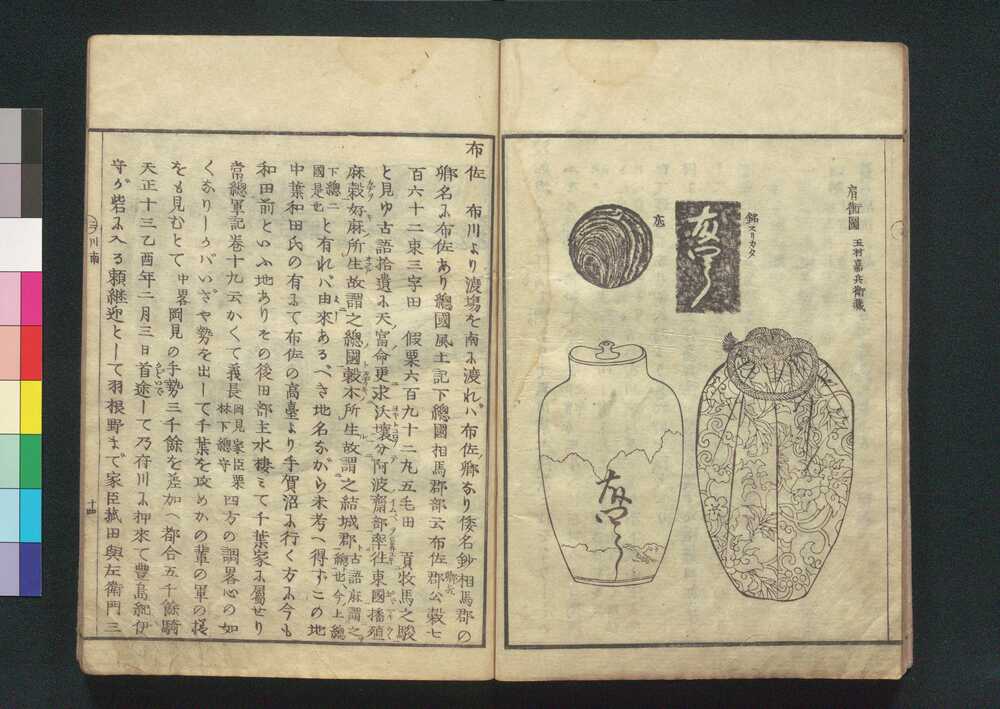 肩衝圖 玉村嘉兵衛藏
銘スリカタ
底
布佐 布川より渡塲を南に渡れバ布佐郷なり倭名鈔相馬郡の
郷名に布佐あり總國風土記下總國相馬郡部云布佐郡公穀七
百六十二束三字田 假粟六百九十二九五毛田 貢牧馬之駿
と見ゆ古語拾遺に天富命更求沃壤分阿波齋部率往東國播殖
麻穀好麻所生故謂之總國穀木所生故謂之結城郡 古語麻謂之總也今上總
下總二國是也 と有れバ由來あるべき地名ながら未考へ得ずこの地
中葉和田氏の有にて布佐の高臺より手賀沼に行く方に今も
和田前といふ地ありその後田部主水棲ミて千葉家に屬せり
常總軍記卷十九云かくて義長 岡見家臣栗林下總守 四方の調畧心の如
くなりしかバいざや勢を出して千葉を攻めかの輩の軍の様
をも見むとて 中畧 岡見の手勢三千餘を差加へ都合五千餘騎
天正十三乙酉年二月三日首途して乃府川に押來て豐島紀伊
守が砦に入る頼繼迎として羽根野まで家臣菰田與左衛門三
川南
十四